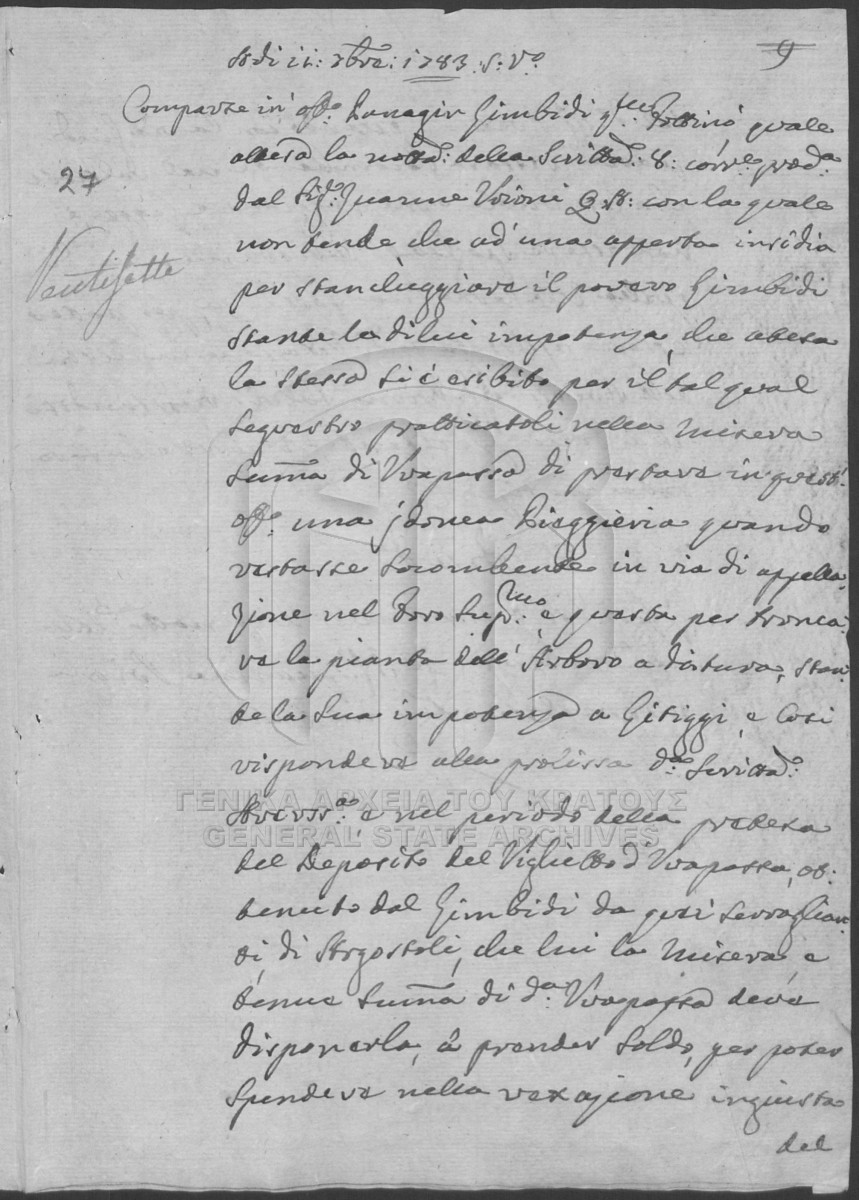 9
Adi 11: xbre: 1783. S: Vo
Comparse in offo: Panagin Gimbidi qm: Fottinò quale
attesa la notta: della Scritta: 8: corre: proda:
dal Sigr: Zuanne Vrioni Q. N: con la quale
non tende che ad una apperta insidia
27
Ventisette
per stancheggiare il povero Gimbidi
stante la di lui impotenza che attesa
la stessa si è esibito per il tal qual
sequestro pratticatoli nella misera
summa di Uvapassa di prestare in quest:
offo: una idonea Pieggieria quando
restasse socombente in via di appella-
zione nel Foro Supmo: e questa per tronca-
re la pianta dell' Arboro a dirtura, stan-
te la sua impotenza a Litiggi, e così
rispondeva alla prolissa da: Scritta:
Avverss:a, e nel periodo della pretesa
del Deposito del Viglietto d Uvapassa, ot-
tenuto dal Gimbidi da quei Serraglian-
ti, di Argostoli, che lui la misera, e
tenue summa di da: Uvapassa deve
disponerla, à prender soldo, per poter
spendere nella vexazione ingiusta
del
ΓΕΝΙΚΑ ΑΡΧΕΙΑ ΤΟΥ ΚΡΑΤΟΥΣ
GENERAL STATE ARCHIVES